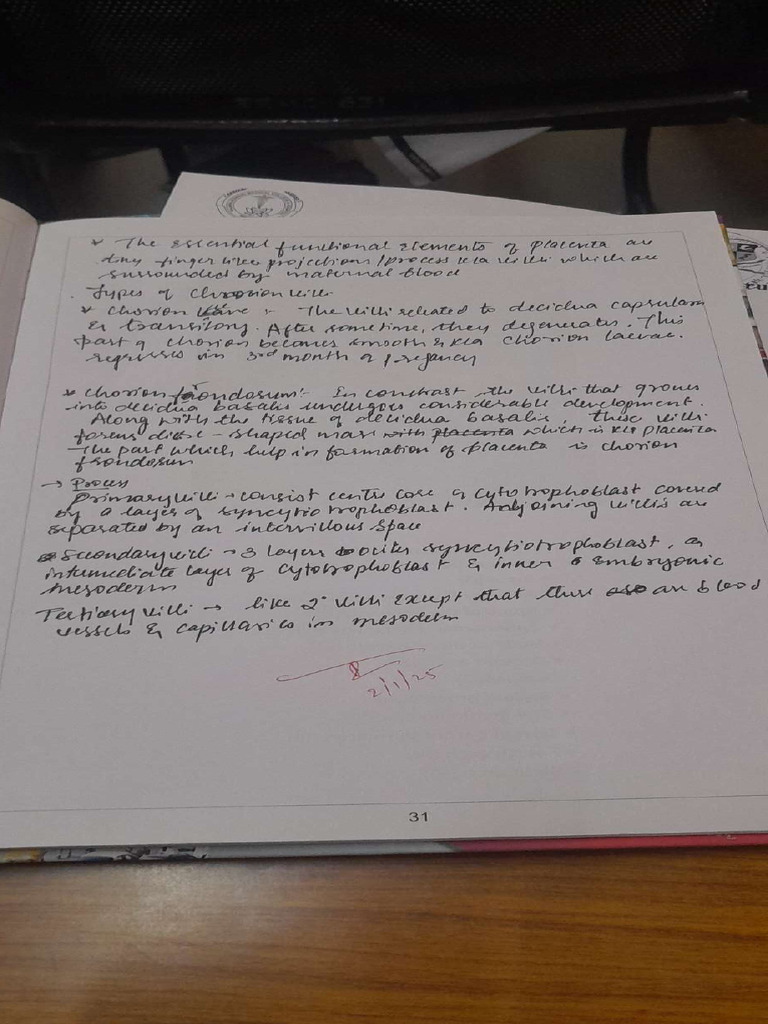 * The essential functional elements of placenta are
tiny finger like projections / process kla villi which are
surrounded by maternal blood
Types of Chorion villi
* Chorion :- The villi related to decidua capsularis
& transitory. After sometime, they degenerates. This
part of chorion becomes smooth & kla chorion laevae.
regresses in 3rd month of pregancy
* Chorion frondosum :- In contrast, the villi that grows
into decidua basalis undergoes considerable development.
Along with the tissue of decidua basalis, these villi
forms disc-shaped mass with placenta which is kla placenta
The part which help in formation of placenta is chorion
frondosum
→ Process
Primary villi → consist centre core of cytotrophoblast covered
by a layer of syncytiotrophoblast. Adjoining villi are
separated by an intervillous space
Secondary villi → 3 layers outer syncytiotrophoblast, an
intermediate layer of cytotrophoblast & inner embryonic
mesoderm
Tertiary villi → like 2° villi except that there are blood
vessels & capillaries in mesoderm
2/1/25
31